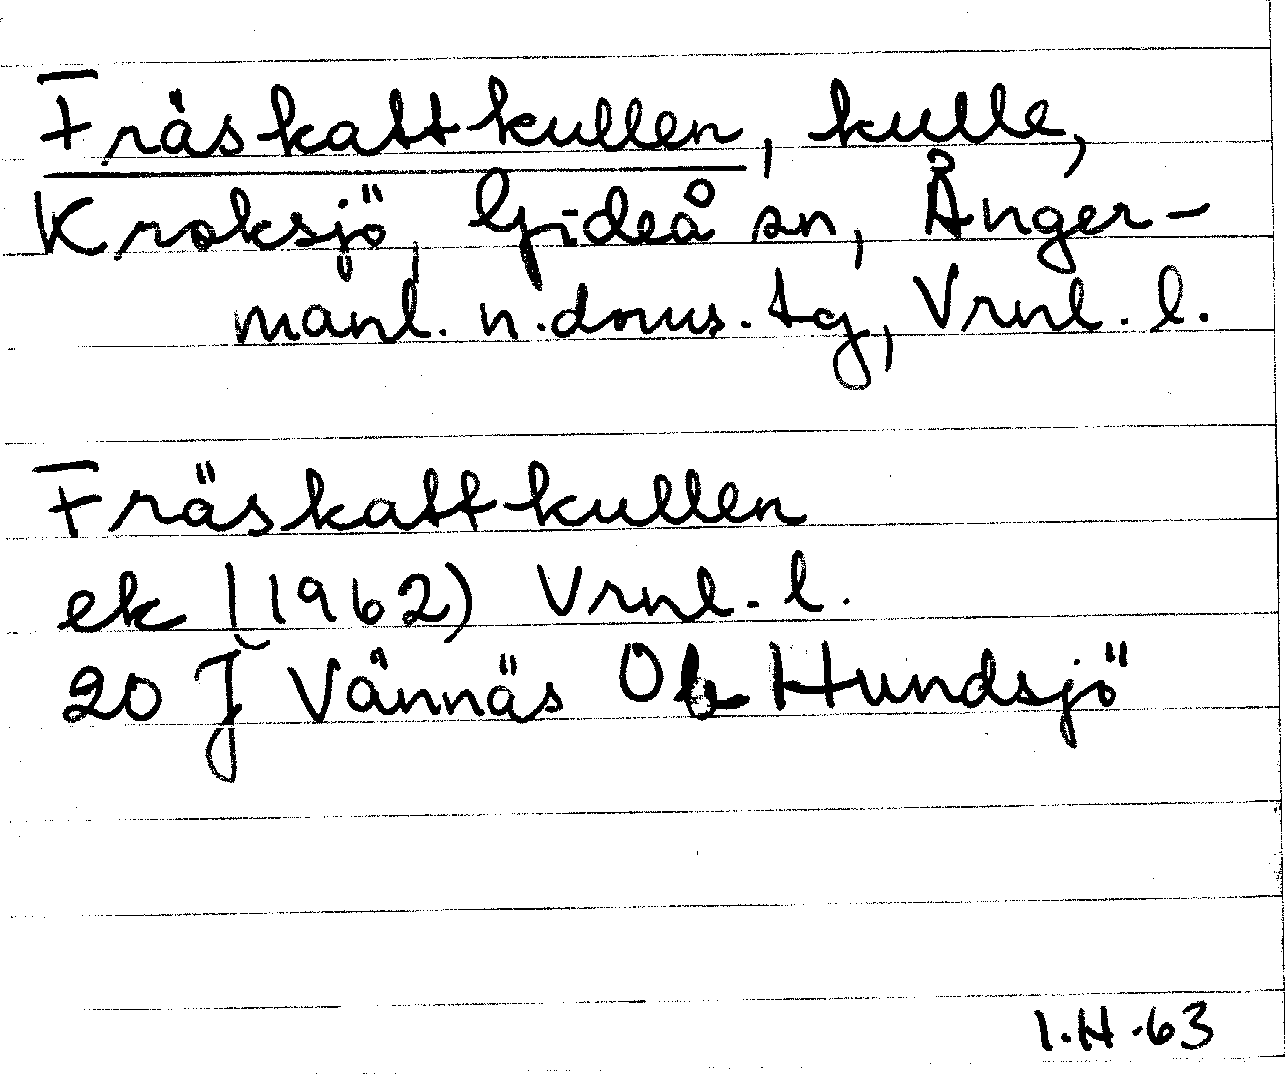 Fräskattkullen, kulle,
Kroksjö, Gideå sn, Ånger-
manl. n. doms. tg, Vrnl. l.
Fräskattkullen
ek (1962) Vrnl. l.
20 J Vännäs Ob Hundsjö
I.H.63